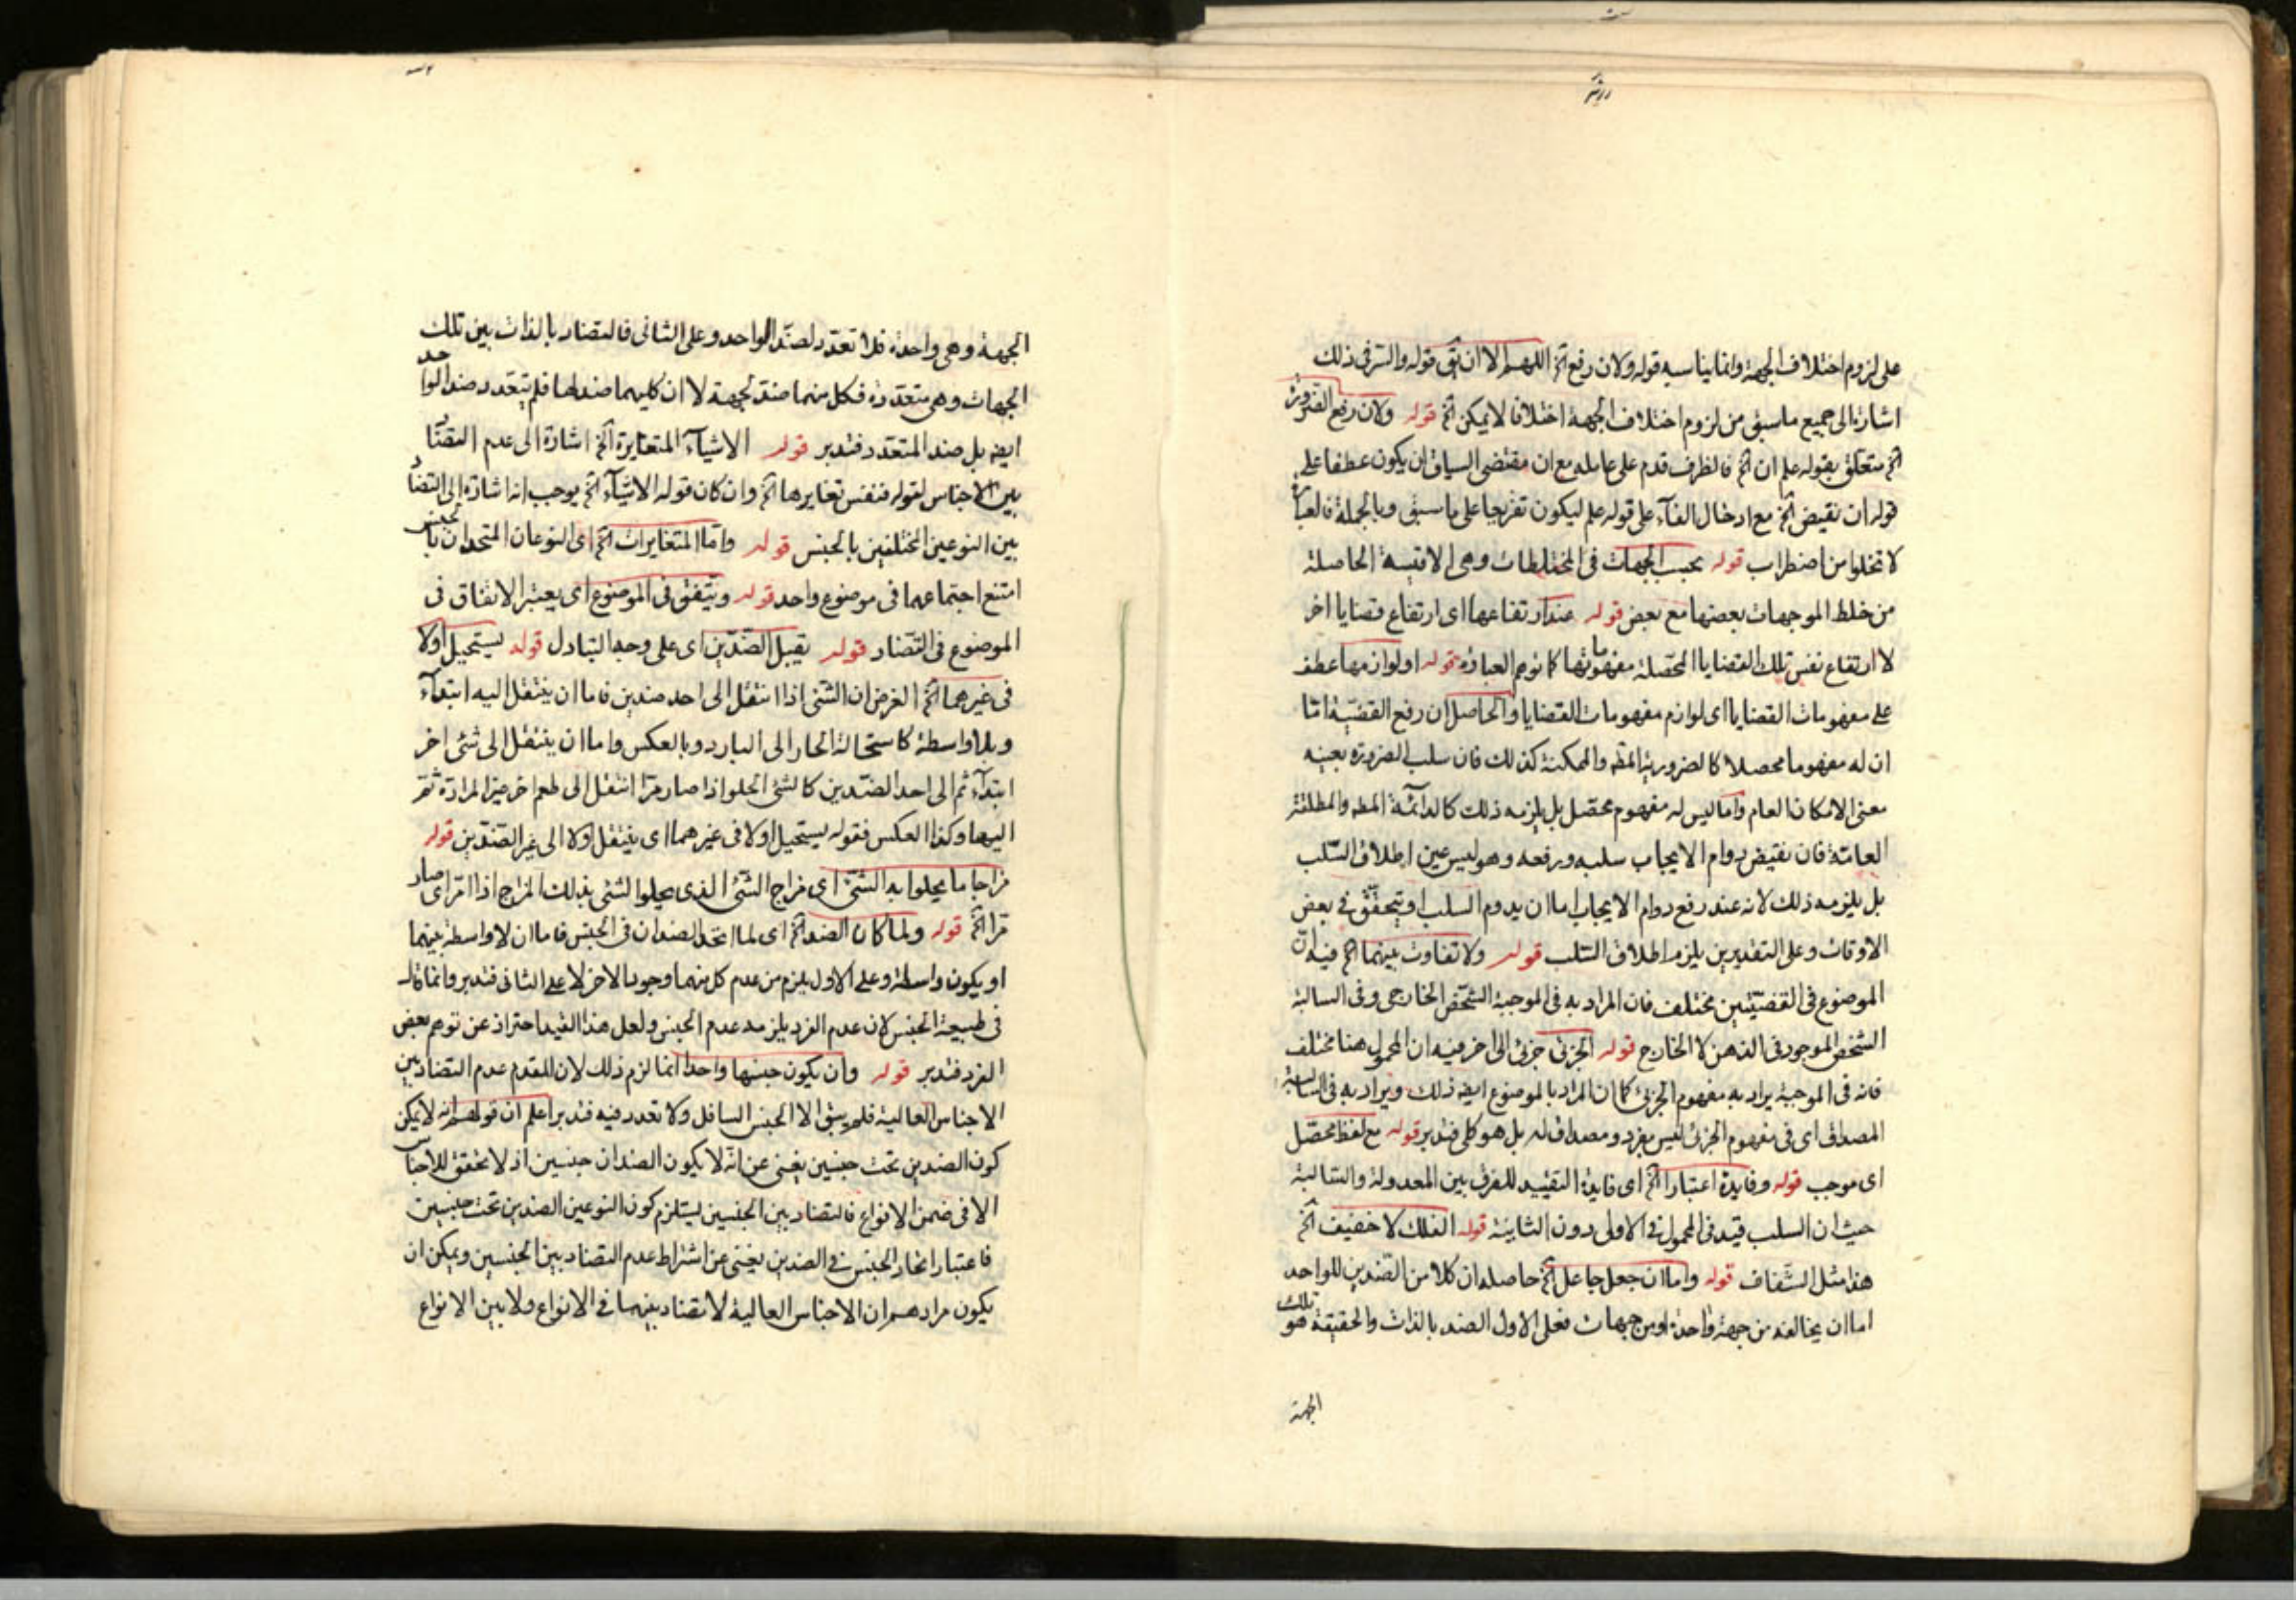 على لزوم اختلاف الجهة وانما يناسبه قوله ولان رفع آلخ اللهم الا ان يق قوله والسر فى ذلك
اشارة الى جميع ما سبق من لزوم اختلاف الجهة اختلافا لا يمكن آلخ قوله ولان رفع الضرورة
آلخ متعلق بقوله علم ان آلخ فالظرف قدم على عامله مع ان مقتضى السياق ان يكون عطفا على
قوله ان نقيض آلخ مع ادخال الفآء على قوله علم ليكون تفريعا على ما سبق وبالجملة فالعبارة
لا تخلوا من اضطراب قوله بحسب الجهات فى المختلطات وهى الاقيسة الحاصلة
من خلط الموجهات بعضها مع بعض قوله عند ارتفاعها اى ارتفاع قضايا اخر
لا ارتفاع نفس تلك القضايا المحصلة مفهوماتها كما توهم العبارة قوله او لوازمها عطف
على مفهومات القضايا اى لوازم مفهومات القضايا والحاصل ان رفع القضية اما
ان له مفهوما محصلا كالضرورية المط والممكنة كذلك فان سلب الضرورة بعينه
معنى الامكان العام واما ليس له مفهوم محصل بل يلزمه ذلك كالدائمة المط والمطلقة
العامة فان نقيض دوام الايجاب سلبه ورفعه وهو ليس عين اطلاق السلب
بل يلزمه ذلك لانه عند رفع دوام الايجاب اما ان يدوم السلب او يتحقق فى بعض
الاوقات وعلى التقديرين يلزم اطلاق السلب قوله ولا تفاوت بينهما آلخ فيه ان
الموضوع فى القضيتين مختلف فان المراد به فى الموجبة الشخص الخارجى وفى السالبة
الشخص الموجود فى الذهن لا الخارج قوله الجزئى جزئى الى اخر فيه ان المحمول هنا مختلف
فانه فى الموجبة يراد به مفهوم الجزئى كما ان المراد بالموضوع ايض ذلك ويراد به فى السالبة
المصداق اى فى مفهوم الجزئى ليس بفرد ومصداق له بل هو كلى فتدبر قوله مع لفظ محصل
اى موجب قوله وفايدة اعتبار آلخ اى فايدة التقييد للفرق بين المعدولة والسالبة
حيث ان السلب قيد فى المحمول فى الاولى دون الثانية قوله الفلك لا خفيف آلخ
هذا مثل الشفاف قوله واما ان جعل جاعل آلخ حاصله ان كلا من الضدين للواحد
اما ان يخالفه من جهة واحدة او من جهات فعلى الاول الضد بالذات والحقيقة هو تلك
الجهة
الجهة وهى واحدة فلا تعدد لضد الواحد وعلى الثانى فالتضاد بالذات بين تلك
الجهات وهى متعددة فكل منهما ضد لجهة لا ان كليهما ضد لها فلم يتعدد ضد الواحد
ايض بل ضد المتعدد فتدبر قوله الاشيآء المتغايرة آلخ اشارة الى عدم التضاد
بين الاجناس لقوله فنفس تغايرها آلخ وان كان قوله الاشيآء آلخ يوجب انه اشارة الى التضاد
بين النوعين المختلفين بالجنس قوله واما المتغايرات آلخ اى النوعان المتحدان بالجنس
امتنع اجتماعهما فى موضوع واحد قوله ويتفق فى الموضوع اى يعتبر الاتفاق فى
الموضوع فى التضاد قوله يقبل الضدين اى على وجه التبادل قوله يستحيل اولا
فى غيرهما آلخ الغرض ان الشئ اذا انتقل الى احد ضدين فاما ان ينتقل اليه ابتدآء
وبلا واسطة كاستحالة الحار الى البارد وبالعكس واما ان ينتقل الى شئ اخر
ابتدآء ثم الى احد الضدين كالشئ الحلو اذا صار مرا انتقل الى طعم اخر غير المرارة ثم
اليها وكذا العكس فقوله يستحيل اولا فى غيرهما اى ينتقل اولا الى غير الضدين قوله
مزاجا ما يحلوا به الشئ اى مزاج الشئ الذى يحلوا الشئ بذلك المزاج اذا امر اى صار
مرا آلخ قوله ولما كان الضد آلخ اى لما اتحد الضدان فى الجنس فاما ان لا واسطة بينهما
او يكون واسطة وعلى الاول يلزم من عدم كل منهما وجود الاخر لا على الثانى فتدبر وانما قال
فى طبيعة الجنس لان عدم الفرد يلزمه عدم الجنس ولعل هذا القيد احتراز عن توهم بعض
الفرد فتدبر قوله وان يكون جنسها واحدا انما لزم ذلك لان المقدم عدم التضاد بين
الاجناس العالية فلم يبق الا الجنس السافل ولا تعدد فيه فتدبر اعلم ان قولهم انه لا يمكن
كون الضدين تحت جنسين يغنى عن انه لا يكون الضدان جنسين اذ لا تحقق للاجناس
الا فى ضمن الانواع فالتضاد بين الجنسين يستلزم كون النوعين الضدين تحت جنسين
فاعتبار اتحاد الجنس فى الضدين يغنى عن اشتراط عدم التضاد بين الجنسين ويمكن ان
يكون مرادهم ان الاجناس العالية لا تضاد بينهما فى الانواع ولا بين الانواع